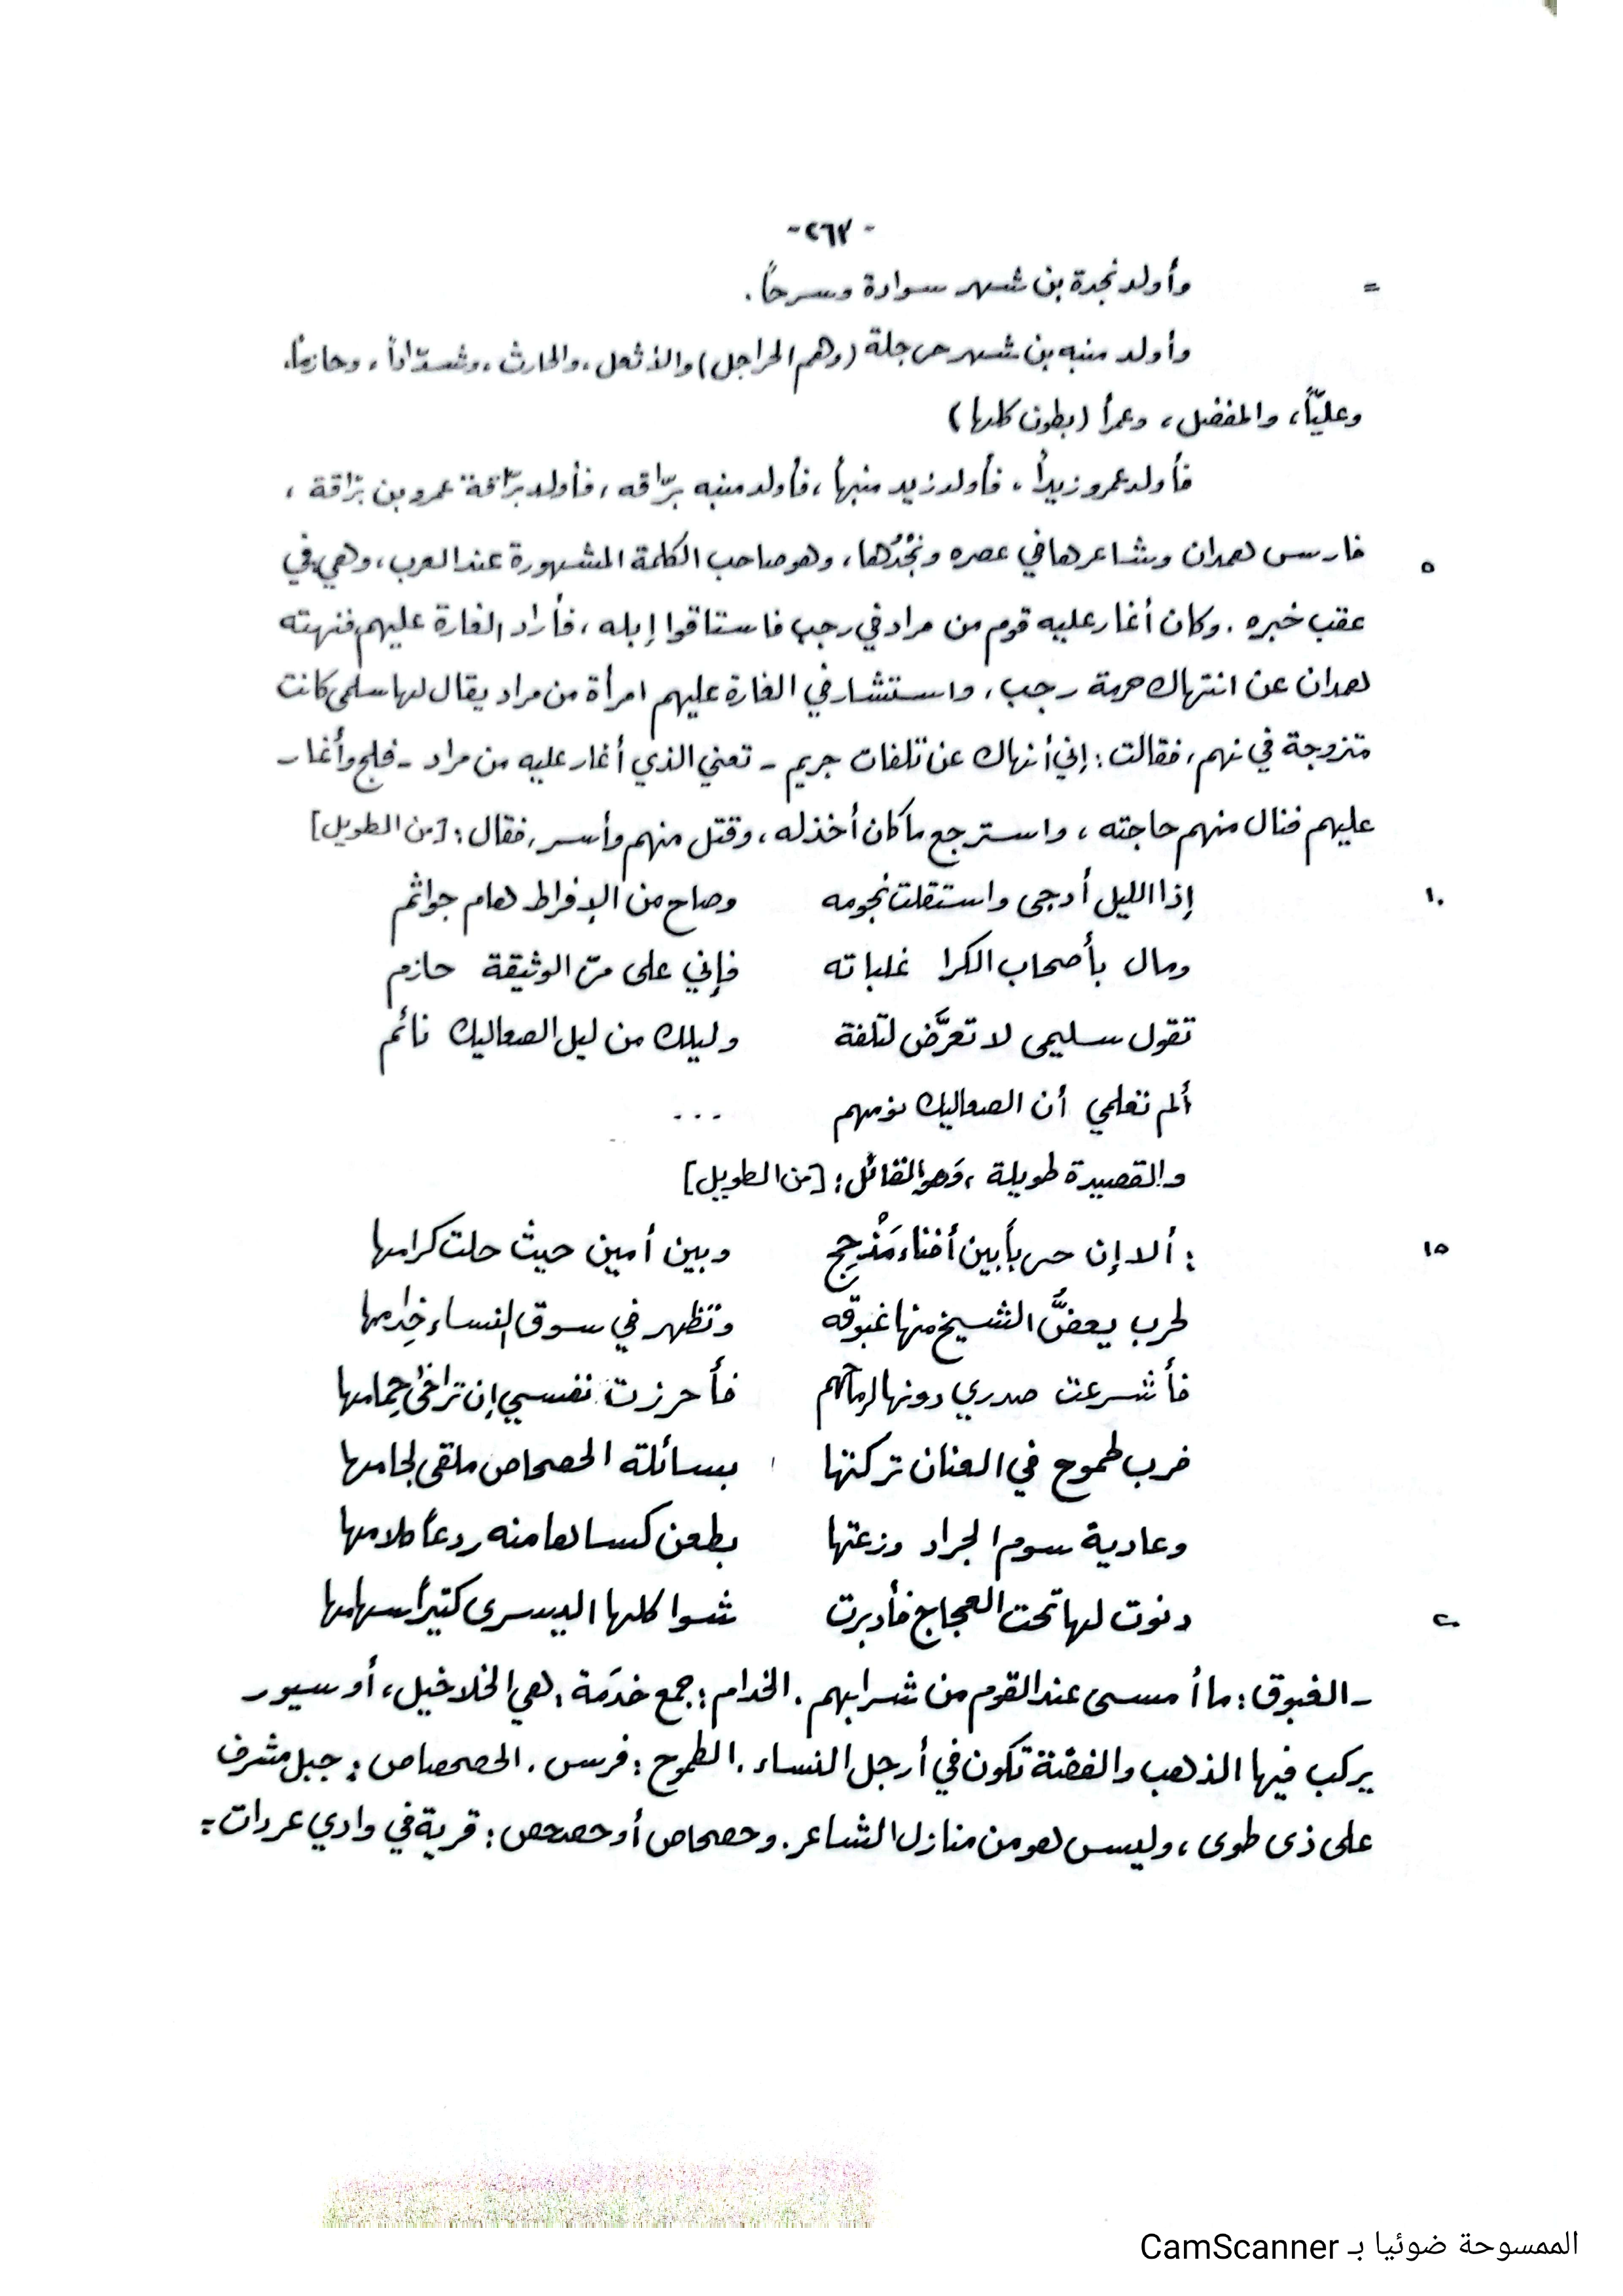 -٢٦٣-
= وأولد نجدة بن شهر سوادة وسرحاً.
وأولد منبه بن شهر حرجلة (وهم الحراجل) والأثعل، والحارث، وشدّاداً، وحازماً،
وعليّاً، والمفضل، وعمراً (بطون كلها)
فأولد عمرو زيداً، فأولد زيد منبهاً، فأولد منبه برّاقه، فأولد برّاقة عمرو بن برّاقة،
٥ فارس همدان وشاعرها في عصره ونجْدُها، وهو صاحب الكلمة المشهورة عند العرب، وهي في
عقب خبره. وكان أغار عليه قوم من مراد في رجب فاستاقوا إبله، فأراد الغارة عليهم فنهته
همدان عن انتهاك حرمة رجب، واستشار في الغارة عليهم امرأة من مراد يقال لها سلمى كانت
متزوجة في نهم، فقالت: إني أنهاك عن تلفات حريم - تعني الذي أغار عليه من مراد - فلج وأغار
عليهم فنال منهم حاجته، واسترجع ما كان أخذ له، وقتل منهم وأسر، فقال: [من الطويل]
١٠ إذا الليل أدجى واستقلت نجومه وصاح من الإفراط هام جواثم
ومال بأصحاب الكرا غلباته فإني على مرّ الوثيقة حازم
تقول سليمى لا تعرَّض لتلفة وليلك من ليل الصعاليك نائم
ألم تعلمي أن الصعاليك نومهم ...
والقصيدة طويلة، وَهو القائل: [من الطويل]
١٥ : ألا إن حرباً بين أفناء مَذْحِجٍ وبين أمين حيث حلت كرامها
لحرب يعضُّ الشيخ منها غبوقَه وتظهر في سوق النساء خِدامها
فأشرعت صدري دونها لرماحهم فأحرزت نفسي إن تراخى حِمامها
فرب طموح في العنان تركتها بسائلة الحصحاص ملقى لجامها
وعادية سوم الجراد وزعتها بطعن كساها منه ردعاً كلامها
٢٠ دنوت لها تحت العجاج فأدبرت شوا كلها اليسرى كثيراً سهامها
- الغبوق: ما أمسى عند القوم من شرابهم. الخدام: جمع خدَمة: هي الخلاخيل، أو سيور
يركب فيها الذهب والفضة تكون في أرجل النساء. الطموح: فرس. الحصحاص: جبل مشرف
على ذى طوى، وليس هو من منازل الشاعر. وحصحاص أو حصحص: قرية في وادي عردات =
الممسوحة ضوئيا بـ CamScanner